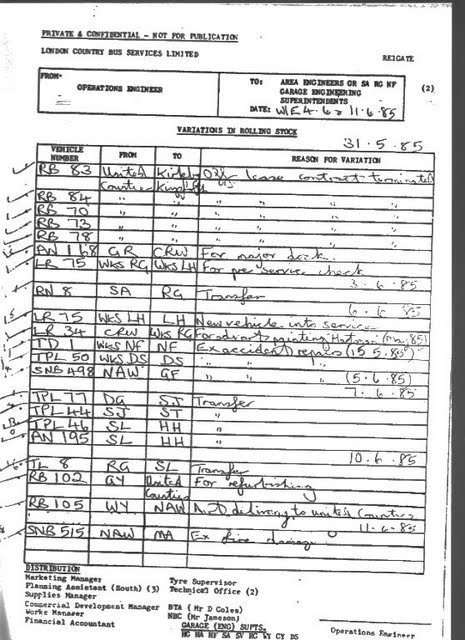 PRIVATE & CONFIDENTIAL - NOT FOR PUBLICATION
LONDON COUNTRY BUS SERVICES LIMITED
REIGATE
FROM- OPERATIONS ENGINEER
TO: AREA ENGINEERS GR SA RG NF (2)
GARAGE ENGINEERING
SUPERINTENDENTS
DATE: W/E 4.6 11.6.85
VARIATIONS IN ROLLING STOCK
31.5.85
VEHICLE NUMBER FROM TO REASON FOR VARIATION
RB 83 United Kirkby Off lease contract terminated
Counties
RB 84 " " " " " "
RB 70 " " " " " "
RB 73 " " " " " "
RB 78 " " " " " "
AN 168 GR CRW For major dock.
LR 75 WKS RG WKS LH For pre service check
3.6.85
RN 8 SA RG Transfer
6.6.85
LR 75 WKS LH LH New vehicle into service
LR 34 CRW WKS RG For advert painting
TD 1 WKS NF NF Ex accident repairs (15.5.85)
TPL 50 WKS DS DS " " "
SNB 498 NAW GF " " (5.6.85)
7.6.85
TPL 77 DG SJ Transfer
TPL 44 SJ ST "
TPL 46 SL HH "
AN 195 SL HH "
10.6.85
TL 8 RG SL Transfer
RB 102 GY United Counties For refurbishing
RB 105 WY NAW delivery to United Counties
11.6.85
SNB 515 NAW MA Ex fire damage
DISTRIBUTION
Marketing Manager Tyre Supervisor
Planning Assistant (South) (3) Technical Office (2)
Supplies Manager
Commercial Development Manager BTA ( Mr D Coles)
Works Manager NBC (Mr Jameson)
Financial Accountant GARAGE (ENG) SUPTS.
HG HA HF SA SV RG CY DS
Operations Engineer